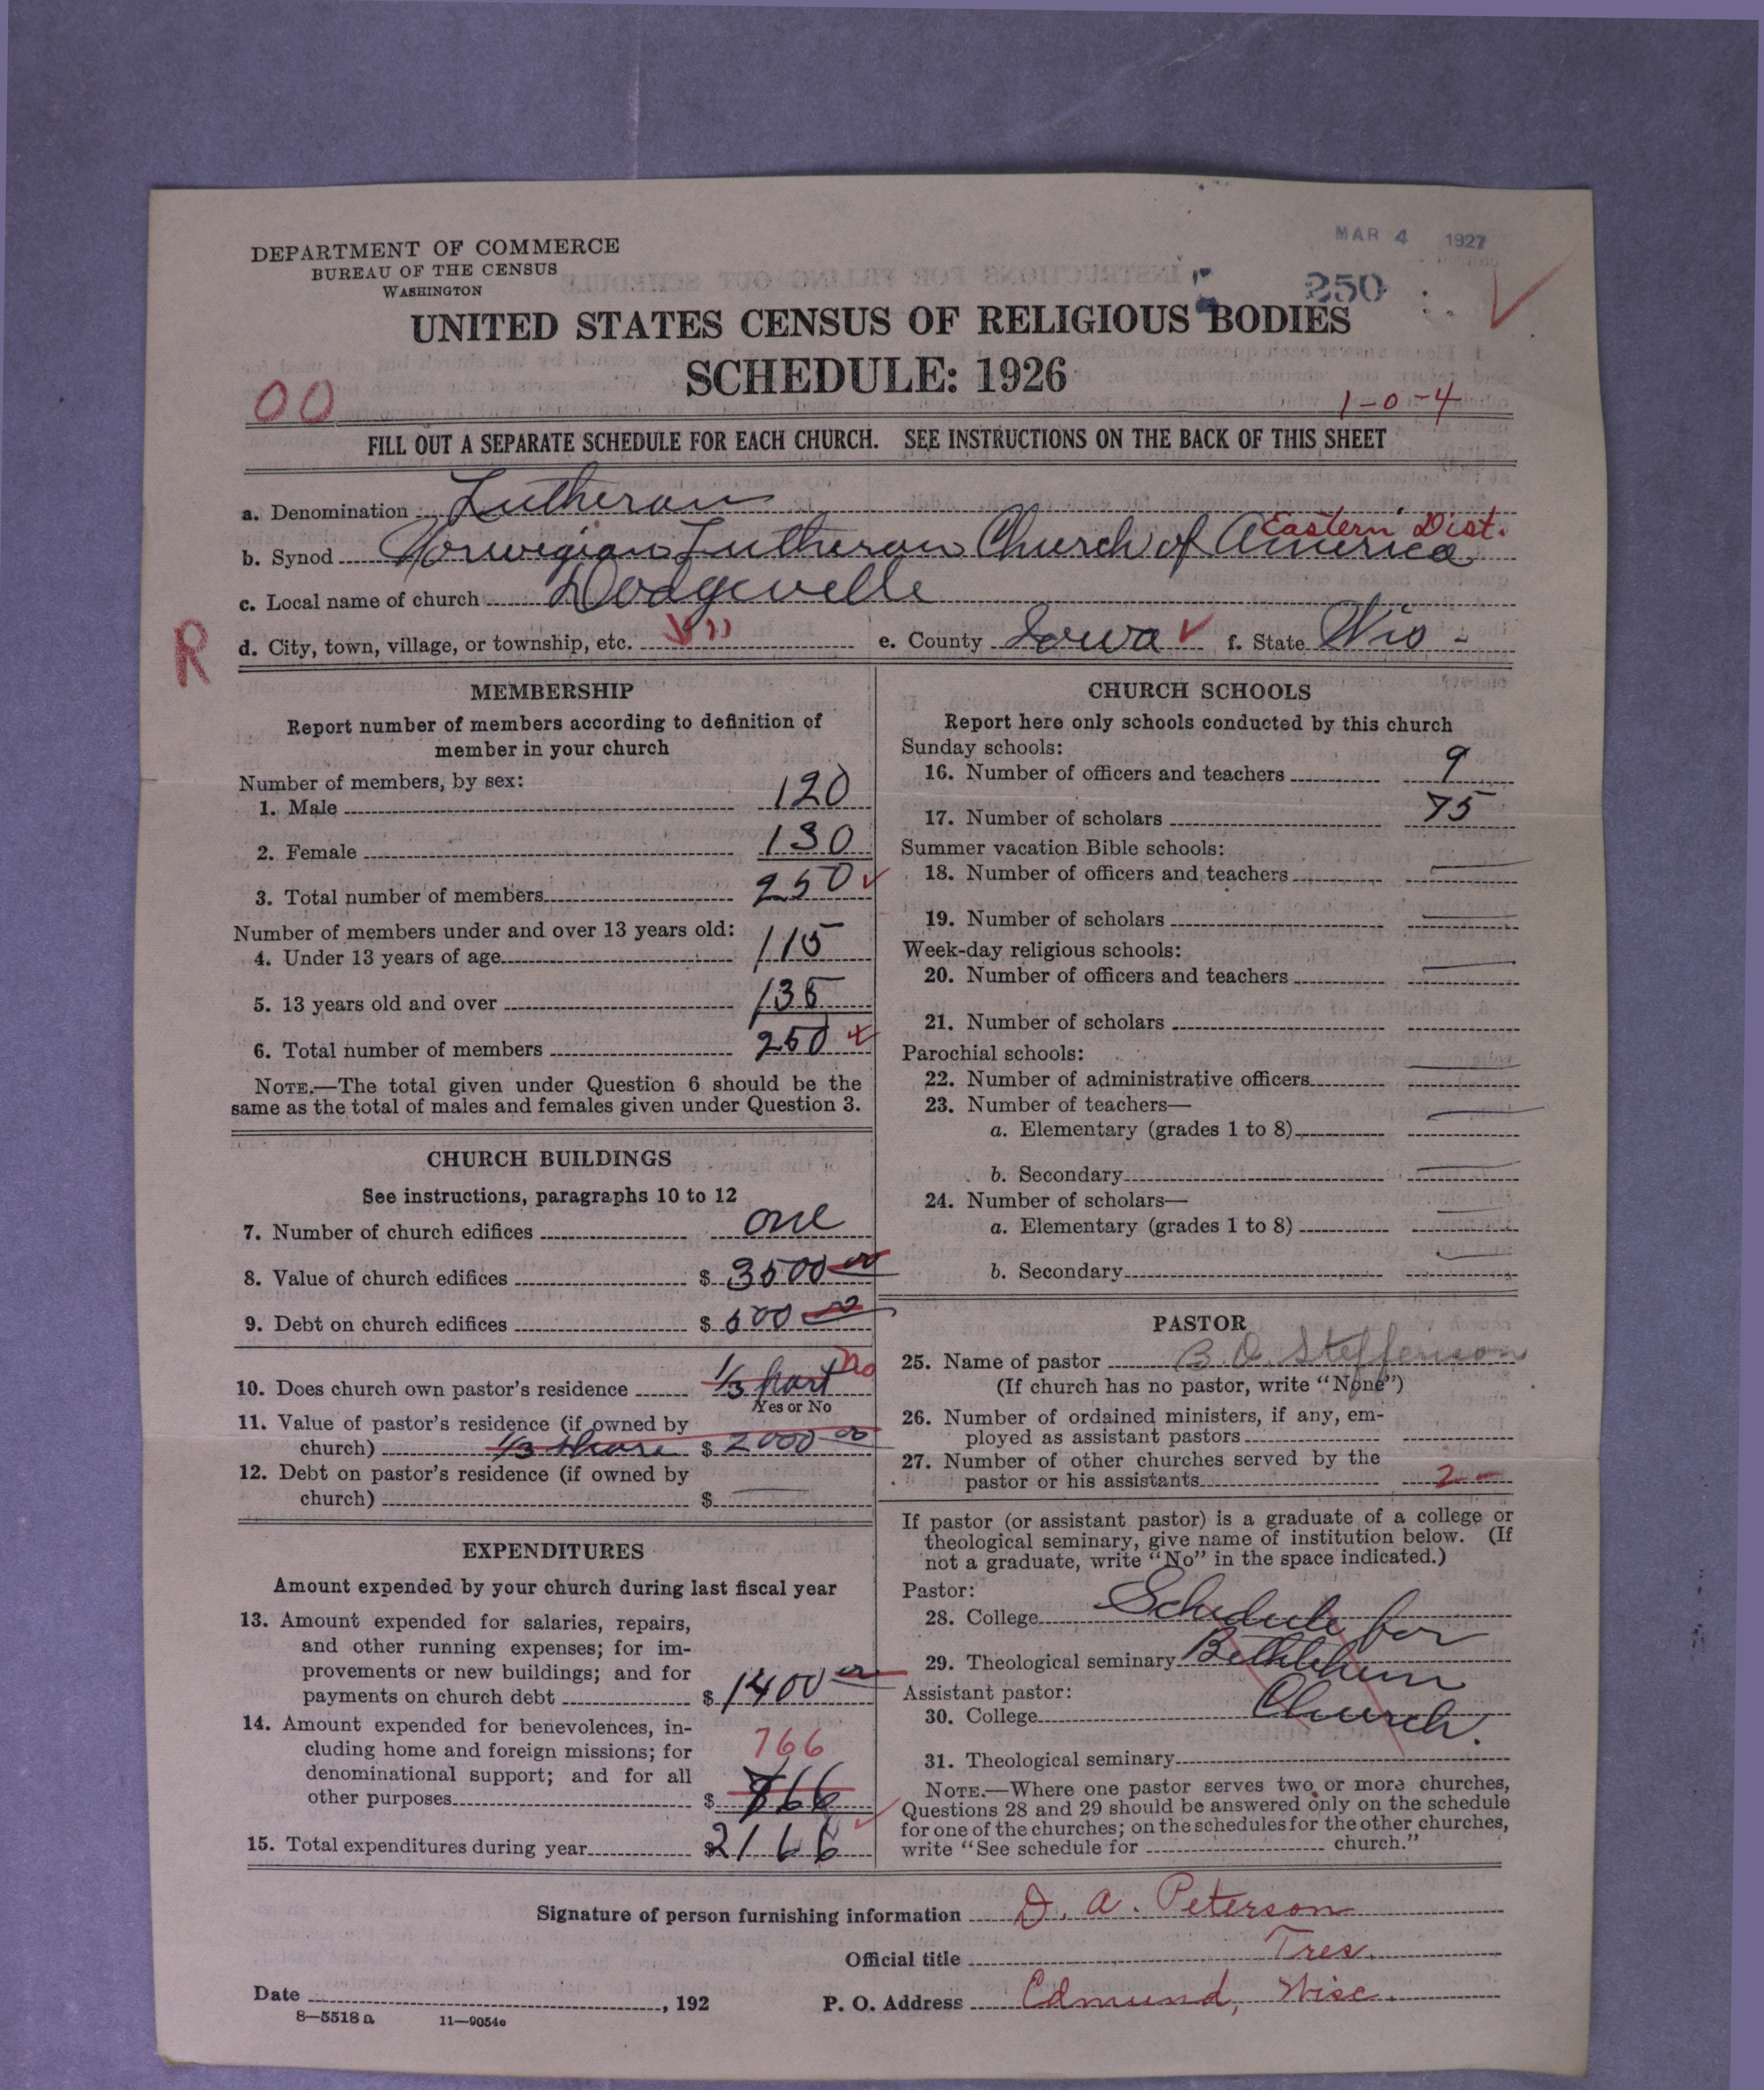 DEPARTMENT OF COMMERCE
BUREAU OF THE CENSUS
WASHINGTON
MAR 4 1927
250
UNITED STATES CENSUS OF RELIGIOUS BODIES
SCHEDULE: 1926
00
1-0-4
FILL OUT A SEPARATE SCHEDULE FOR EACH CHURCH. SEE INSTRUCTIONS ON THE BACK OF THIS SHEET
a. Denomination Lutheran
Eastern Dist.
b. Synod Norwegian Lutheran Church of America
c. Local name of church Dodgeville
R
d. City, town, village, or township, etc. " e. County Iowa f. State Wis-
MEMBERSHIP
Report number of members according to definition of
member in your church
Number of members, by sex:
1. Male 120
2. Female 130
3. Total number of members 250
Number of members under and over 13 years old:
4. Under 13 years of age 115
5. 13 years old and over 135
6. Total number of members 250
NOTE.—The total given under Question 6 should be the
same as the total of males and females given under Question 3.
CHURCH BUILDINGS
See instructions, paragraphs 10 to 12
7. Number of church edifices one
8. Value of church edifices $ 3500 00
9. Debt on church edifices $ 600 00
10. Does church own pastor's residence 1/3 part no
Yes or No
11. Value of pastor's residence (if owned by
church) 1/3 share $ 2000 00
12. Debt on pastor's residence (if owned by
church) $
EXPENDITURES
Amount expended by your church during last fiscal year
13. Amount expended for salaries, repairs,
and other running expenses; for im-
provements or new buildings; and for
payments on church debt $ 1400 00
14. Amount expended for benevolences, in-
cluding home and foreign missions; for
766
denominational support; and for all
other purposes $ 766
15. Total expenditures during year $ 2166
CHURCH SCHOOLS
Report here only schools conducted by this church
Sunday schools:
16. Number of officers and teachers 9
17. Number of scholars 75
Summer vacation Bible schools:
18. Number of officers and teachers
19. Number of scholars
Week-day religious schools:
20. Number of officers and teachers
21. Number of scholars
Parochial schools:
22. Number of administrative officers
23. Number of teachers—
a. Elementary (grades 1 to 8)
b. Secondary
24. Number of scholars—
a. Elementary (grades 1 to 8)
b. Secondary
PASTOR
25. Name of pastor B O Stefferison
(If church has no pastor, write "None")
26. Number of ordained ministers, if any, em-
ployed as assistant pastors
27. Number of other churches served by the
pastor or his assistants 2
If pastor (or assistant pastor) is a graduate of a college or
theological seminary, give name of institution below. (If
not a graduate, write "No" in the space indicated.)
Pastor:
28. College Schedule for
29. Theological seminary Bethlehem
Assistant pastor:
30. College Church.
31. Theological seminary
NOTE.—Where one pastor serves two or more churches,
Questions 28 and 29 should be answered only on the schedule
for one of the churches; on the schedules for the other churches,
write "See schedule for church."
Signature of person furnishing information D. A. Peterson
Official title Tres.
Date , 192 P. O. Address Edmund, Wisc.
8—5518 a 11—9054c